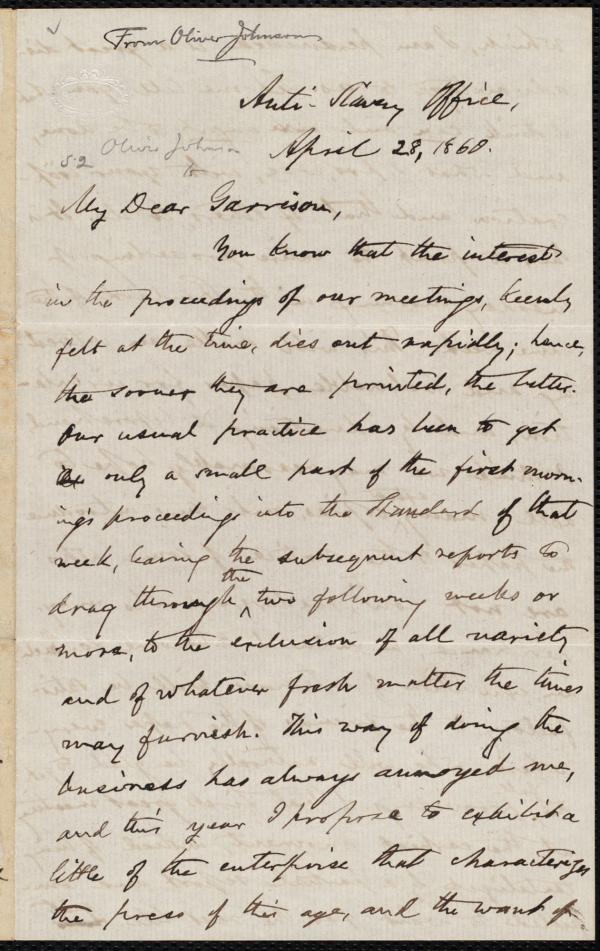 From Oliver Johnson
Anti-Slavery Office,
April 28, 1860.
S. 2 Oliver Johnson
to
My Dear Garrison,
You know that the interest
in the proceedings of our meetings, keenly
felt at the time, dies out rapidly; hence,
the sooner they are printed, the better.
Our usual practice has been to get
only a small part of the first morn-
ing's proceedings into the Standard of that
week, leaving the subsequent reports to
drag through the two following weeks or
more, to the exclusion of all variety
and of whatever fresh matter the times
may furnish. This way of doing the
business has always annoyed me,
and this year I propose to exhibit a
little of the enterprise that characterizes
the press of this age, and the want of